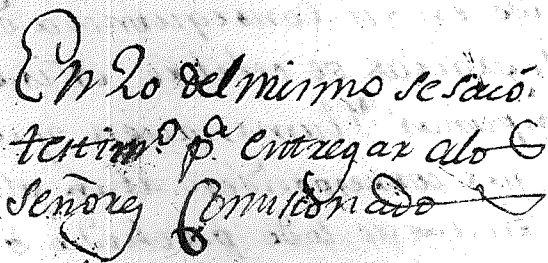 En 20 del mismo se sacó
testim.º p.ª entregar alos
señores Comisionados